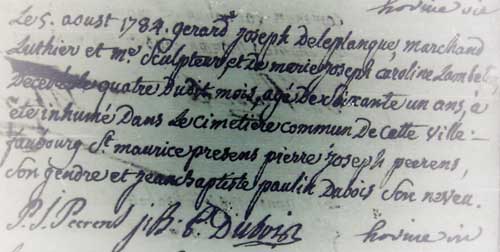 hovine vie
Le 5. aoust 1784. gerard Joseph Deleplanque, marchand
Luthier et me. Sculpteur et de marie Joseph Caroline Lambel,
Decedé le quatre Dudit mois, agé De soixante un ans, a
été inhumé Dans Le cimetiere commun De Cette Ville
faubourg St. maurice presens pierre Joseph peerens,
son gendre et jean baptiste paulin Dubois son neveu.
P. J. Peerens j. B. P. Dubois
hovine vie